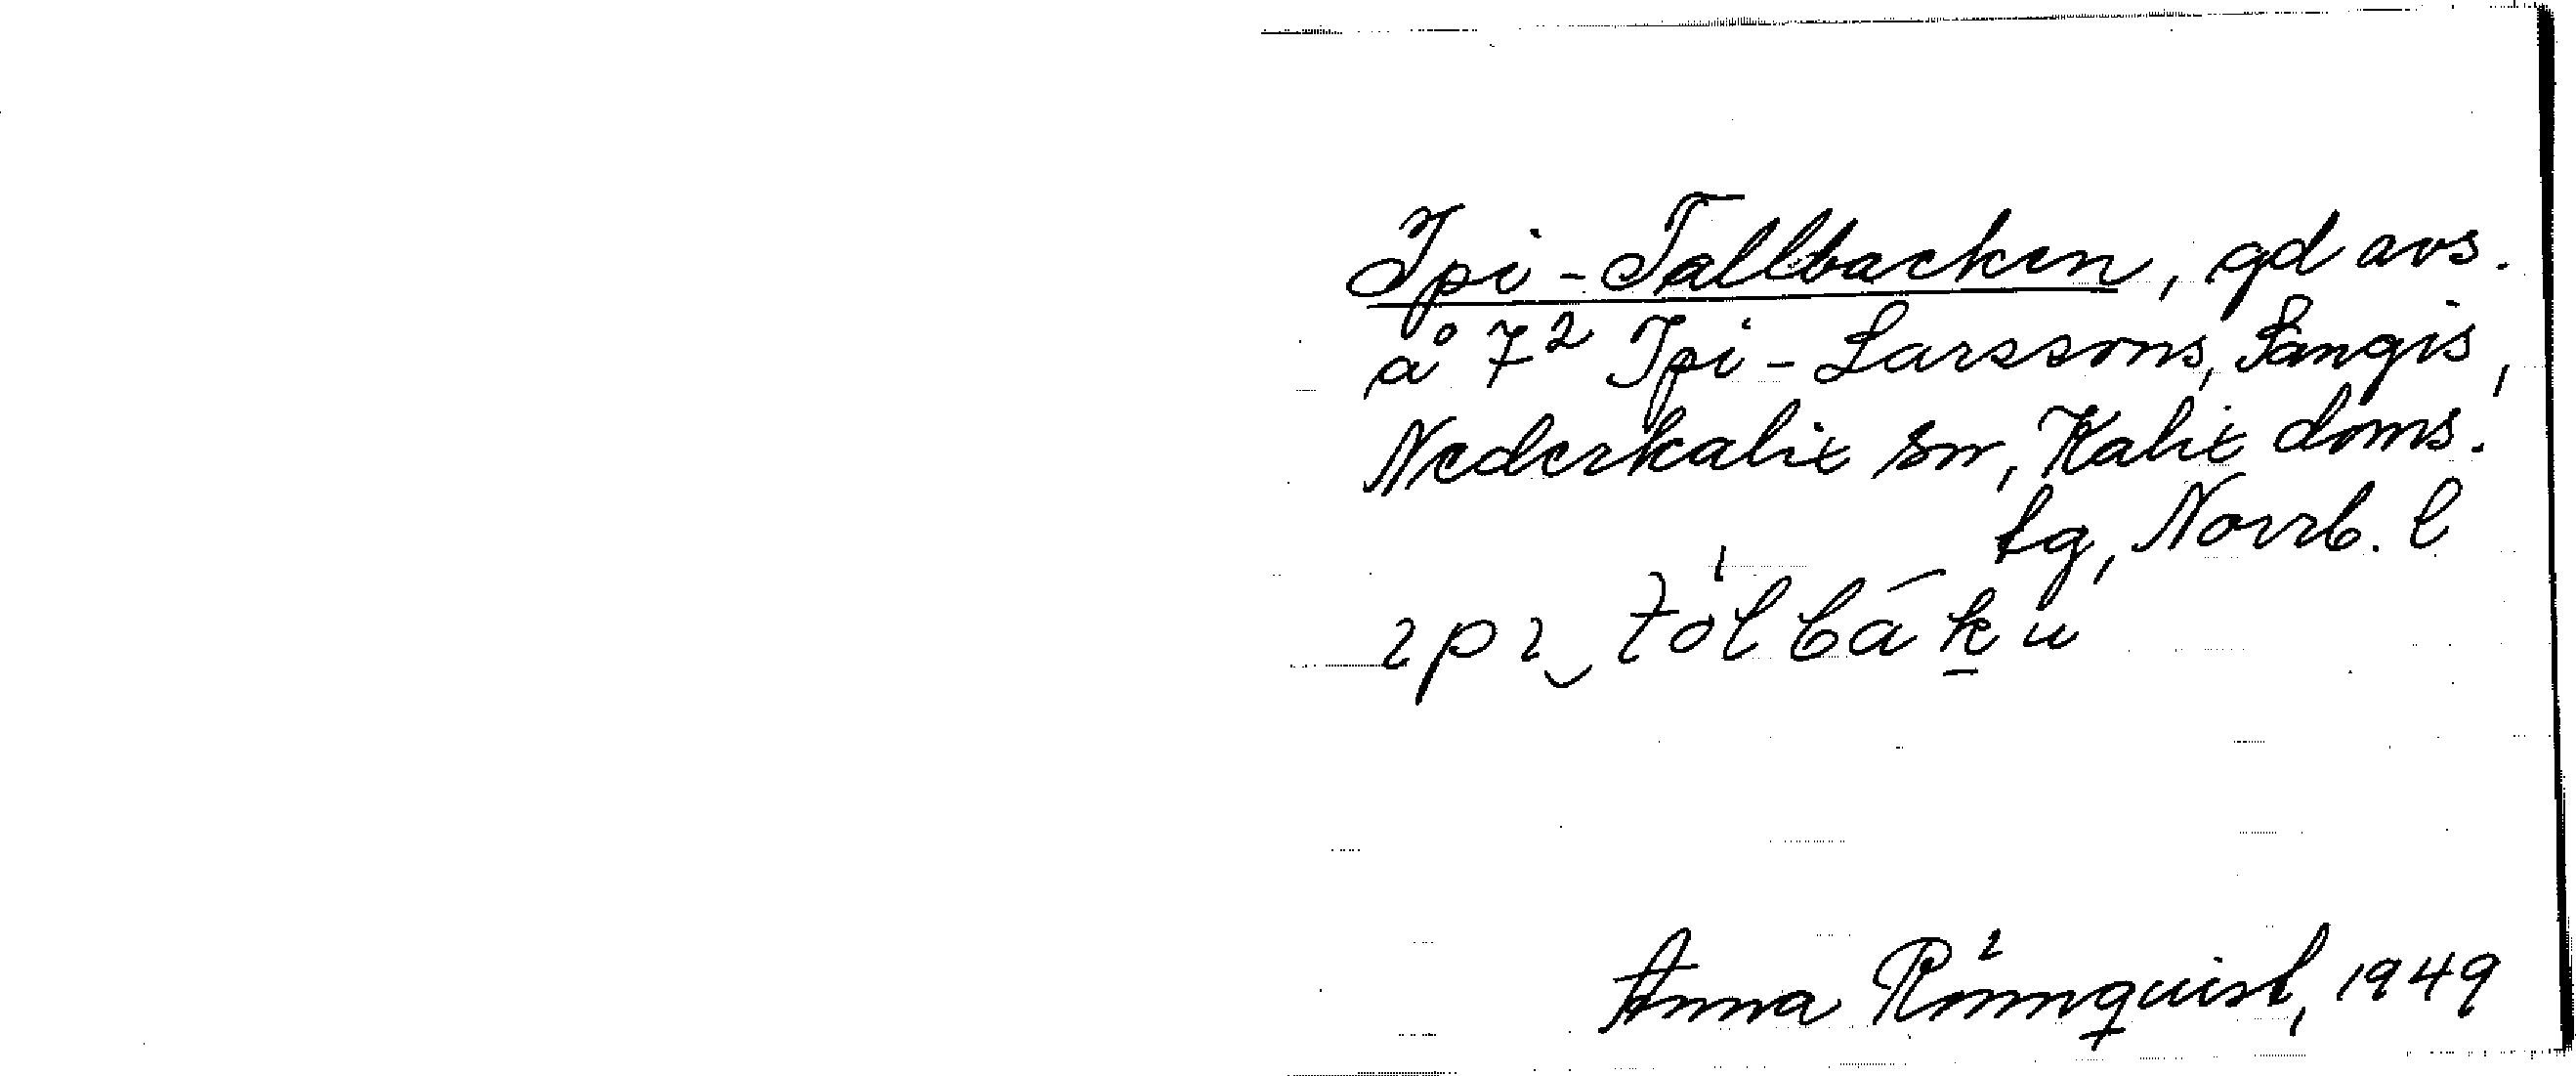 Ipi-Tallbacken, gd avs.
å 7² Ipi-Larssons, Sangis,
Nederkalix sn, Kalix doms.
tg, Norrb. l
ɩpɩ‿tòlbáḵu
Anna Rönnquist, 1949